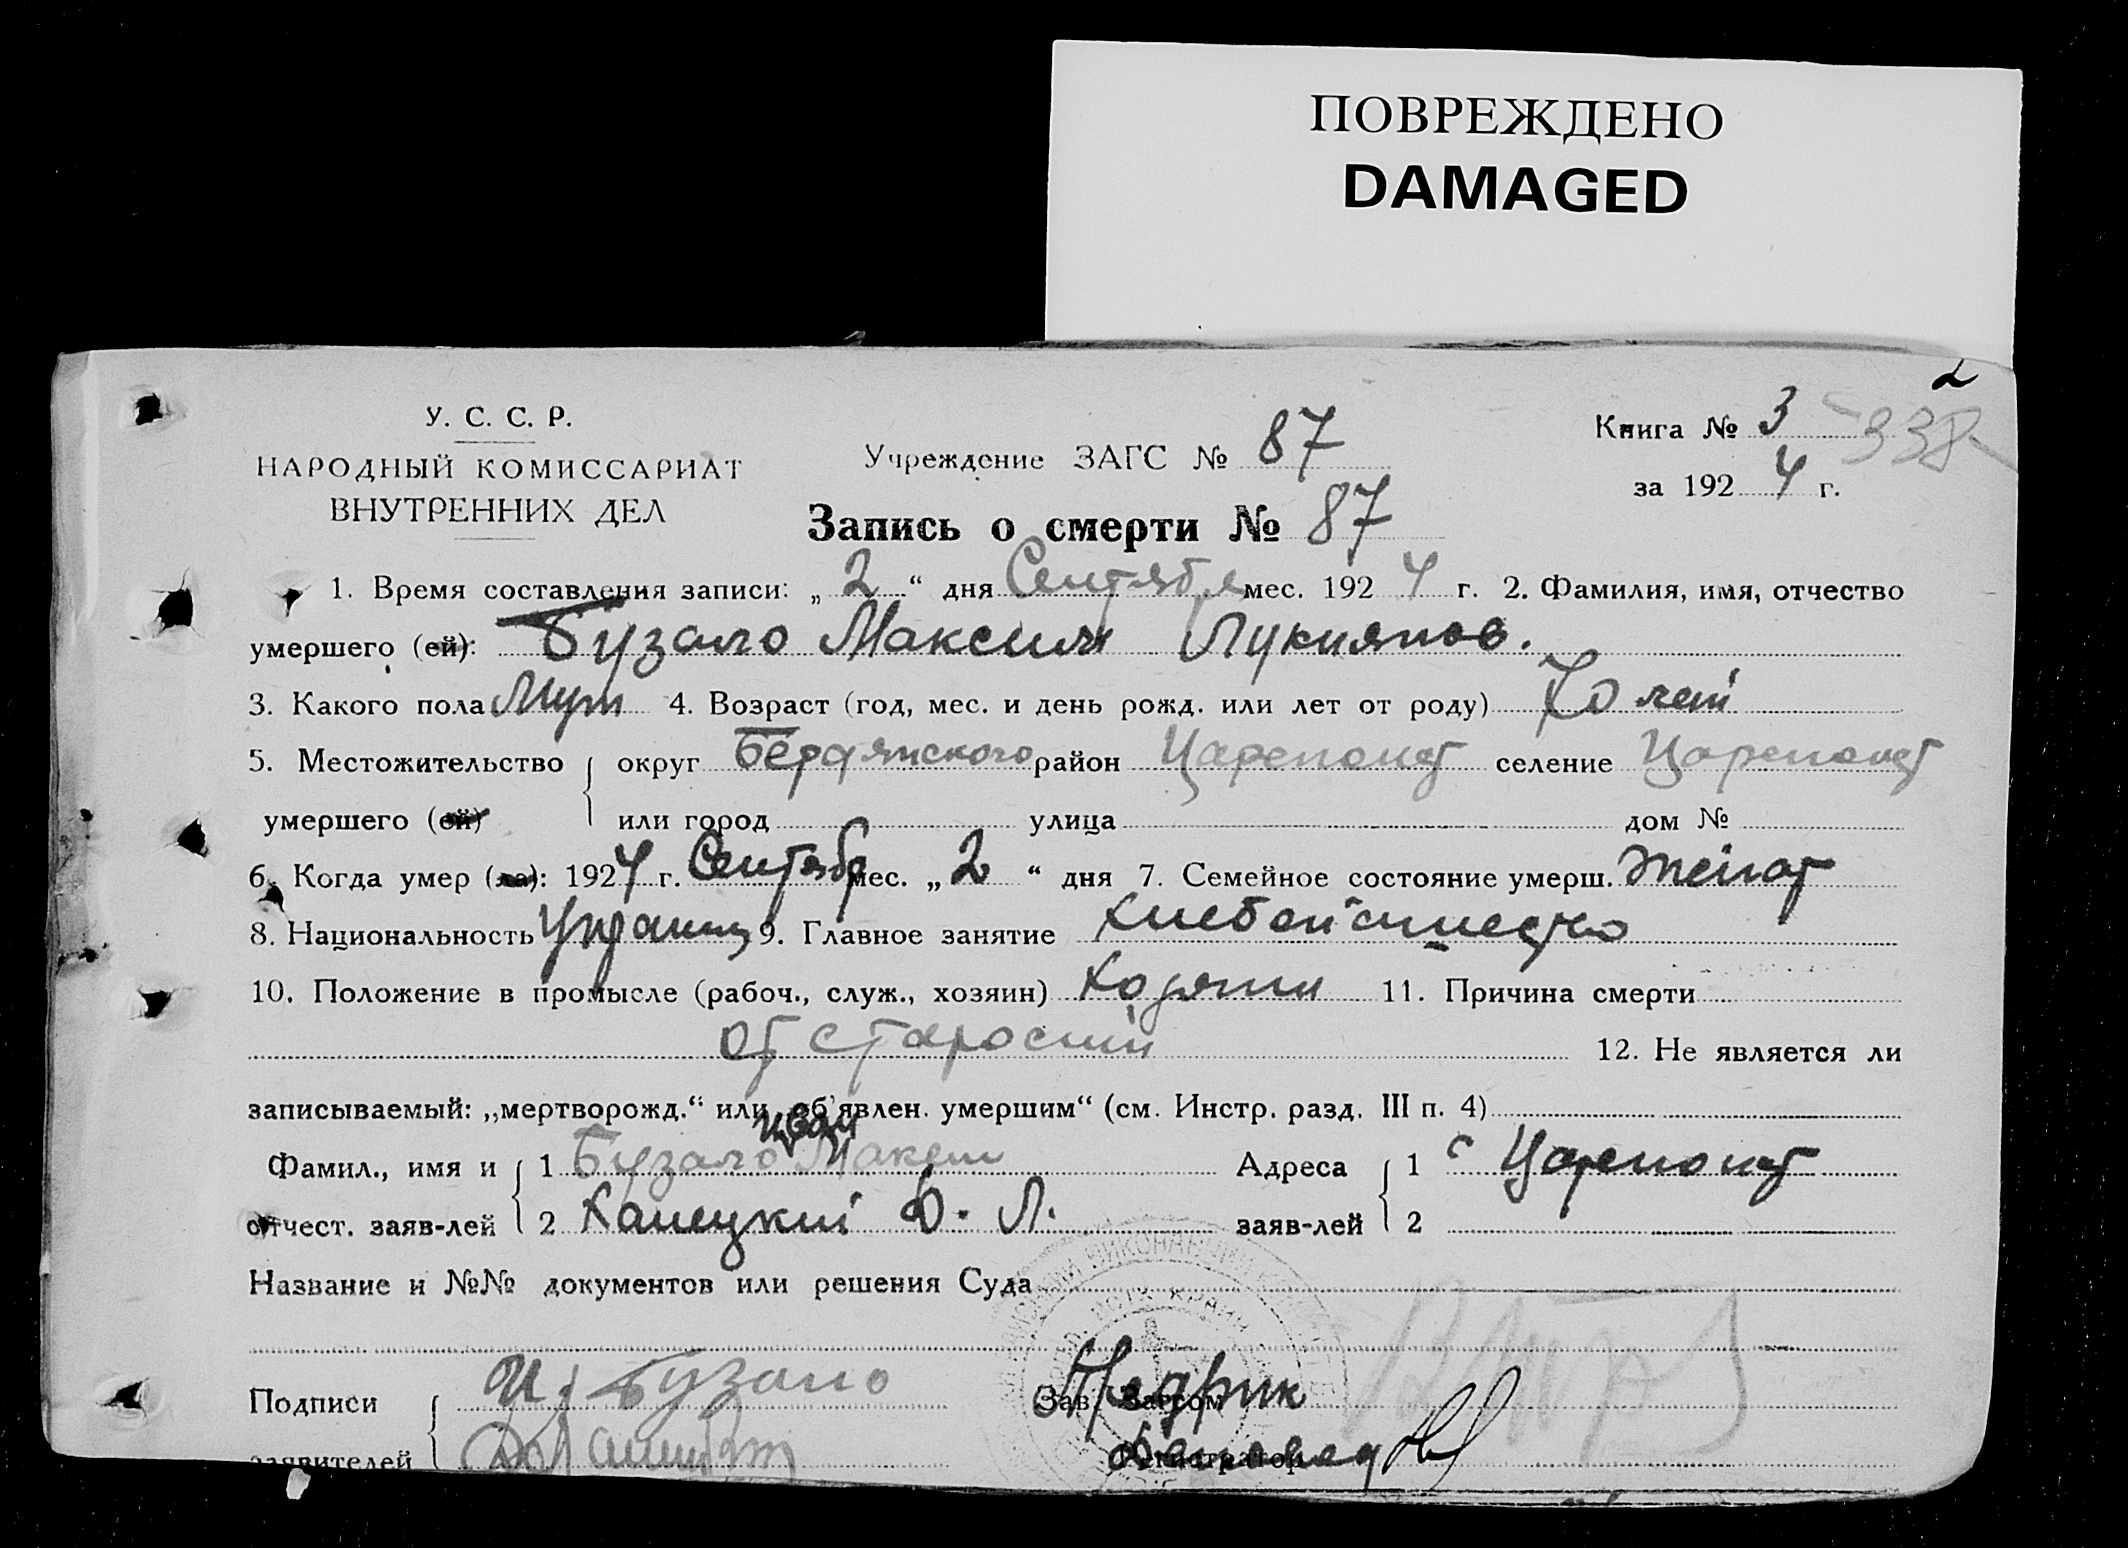 ПОВРЕЖДЕНО
DAMAGED
2
У. С. С. Р.
НАРОДНЫЙ КОМИССАРИАТ
ВНУТРЕННИХ ДЕЛ
Учреждение ЗАГС № 87
Книга № 3 338
за 1924 г.
Запись о смерти № 87
1. Время составления записи: „2“ дня Сентября мес. 1924 г. 2. Фамилия, имя, отчество
умершего (ей): Бузало Максим Лукиянов.
3. Какого пола Муж 4. Возраст (год, мес. и день рожд. или лет от роду) 70 лет
5. Местожительство округ Бердянского район Цареконст селение Цареконст
умершего (ей) или город улица дом №
6. Когда умер (ла): 1924 г. Сентябр мес. „2“ дня 7. Семейное состояние умерш. Женат
8. Национальность Украинц 9. Главное занятие хлебопашество
10. Положение в промысле (рабоч., служ., хозяин) Хозяин 11. Причина смерти
от старости
12. Не является ли
записываемый: „мертворожд.“ или „об'явлен. умершим“ (см. Инстр. разд. III п. 4)
Иван
Фамил., имя и 1 Бузало Максим Адреса 1 с Цареконст
отчест. заяв-лей 2 Канецкий Ф. Л. заяв-лей 2
Название и №№ документов или решения Суда
Подписи И. Бузало Зав. Загсом
заявителей Регистратор